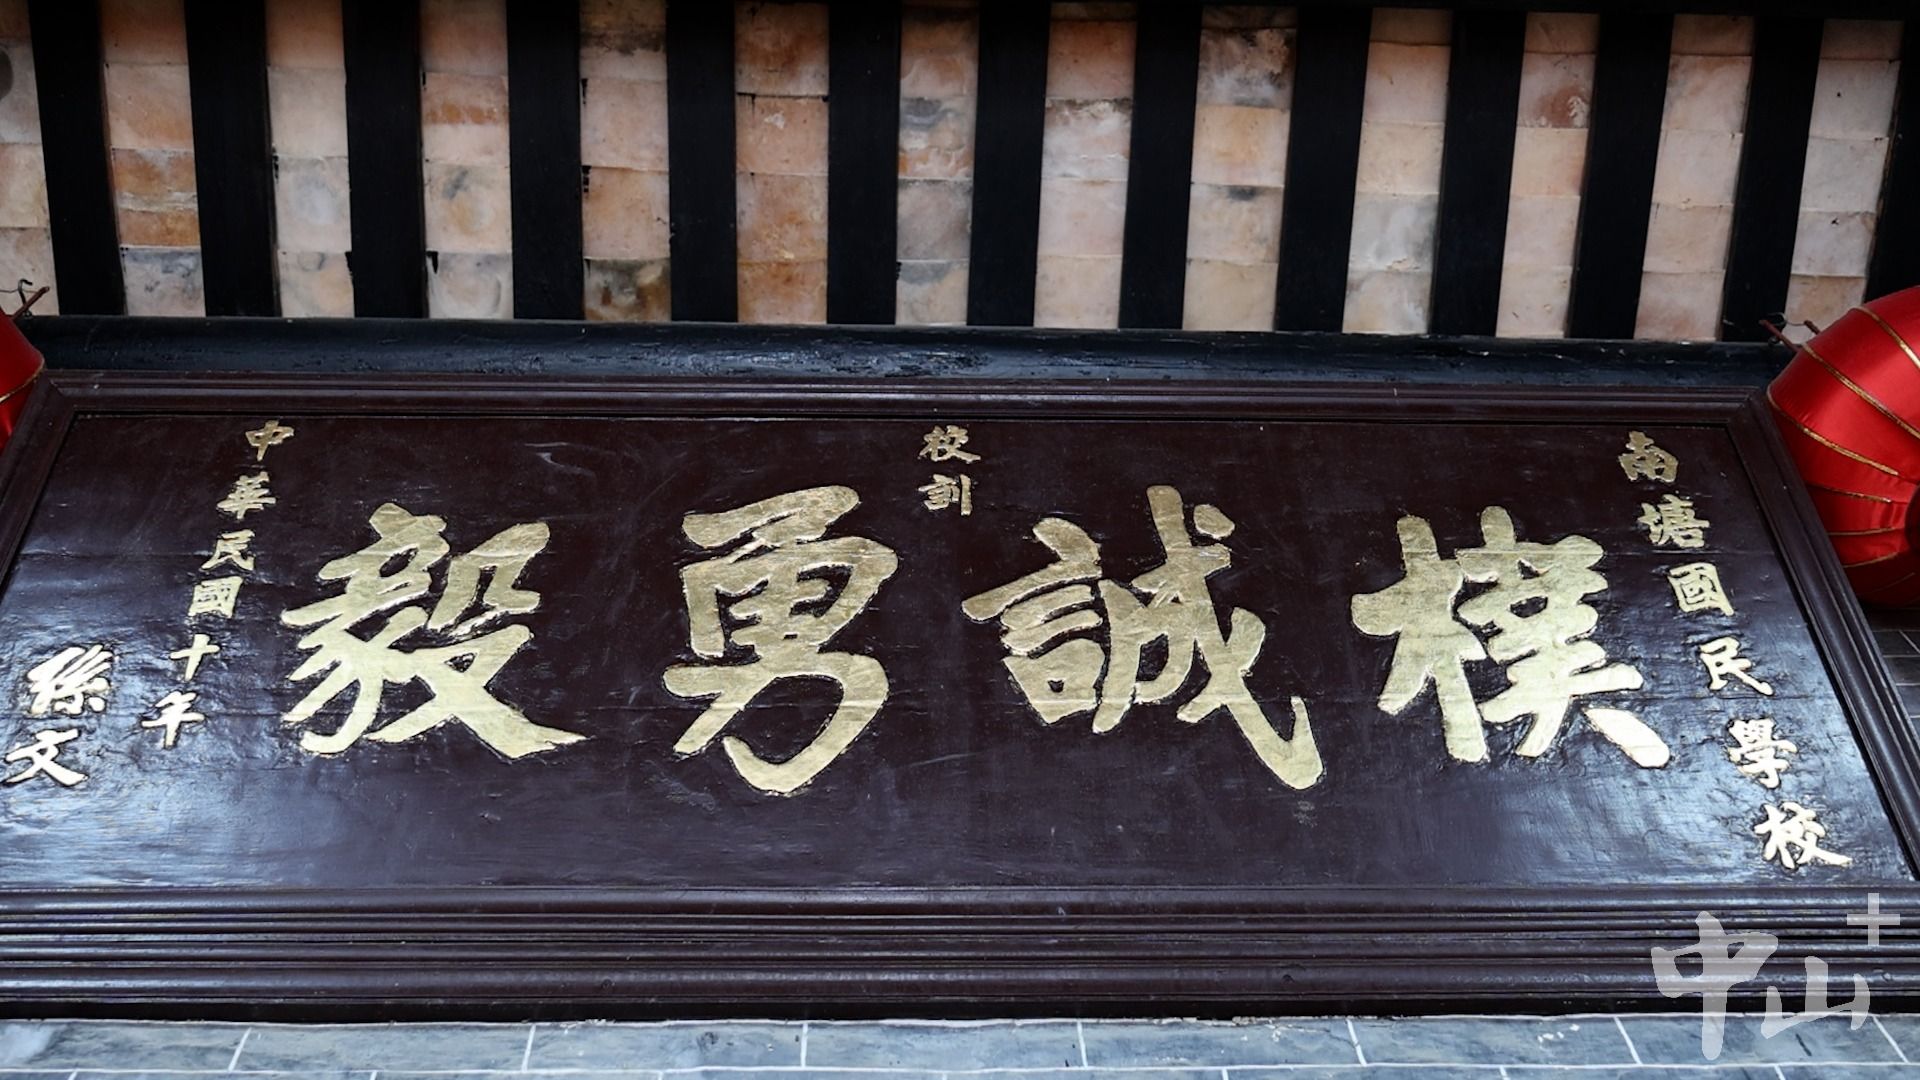 南塘國民學校
校訓
樸誠勇毅
中華民國十年
孫文
中山+